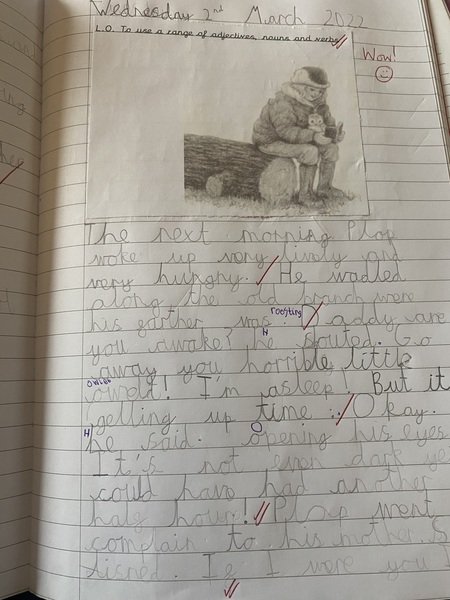 Wednesday 2nd March 2022
L.O. To use a range of adjectives, nouns and verbs
Wow!
The next morning Plop
woke up very lively and
very hungry. He wadled
along the old branch were
his farther was. roosting Daddy are
you awake? H he shouted. Go
away you horrible little
owlet! I'm asleep! But it
getting up time. Okay.
H he said. O opening his eyes
It's not even dark ye
could have had another
half hour! Plop went
complain to his mother. S
tisned. If I were you I